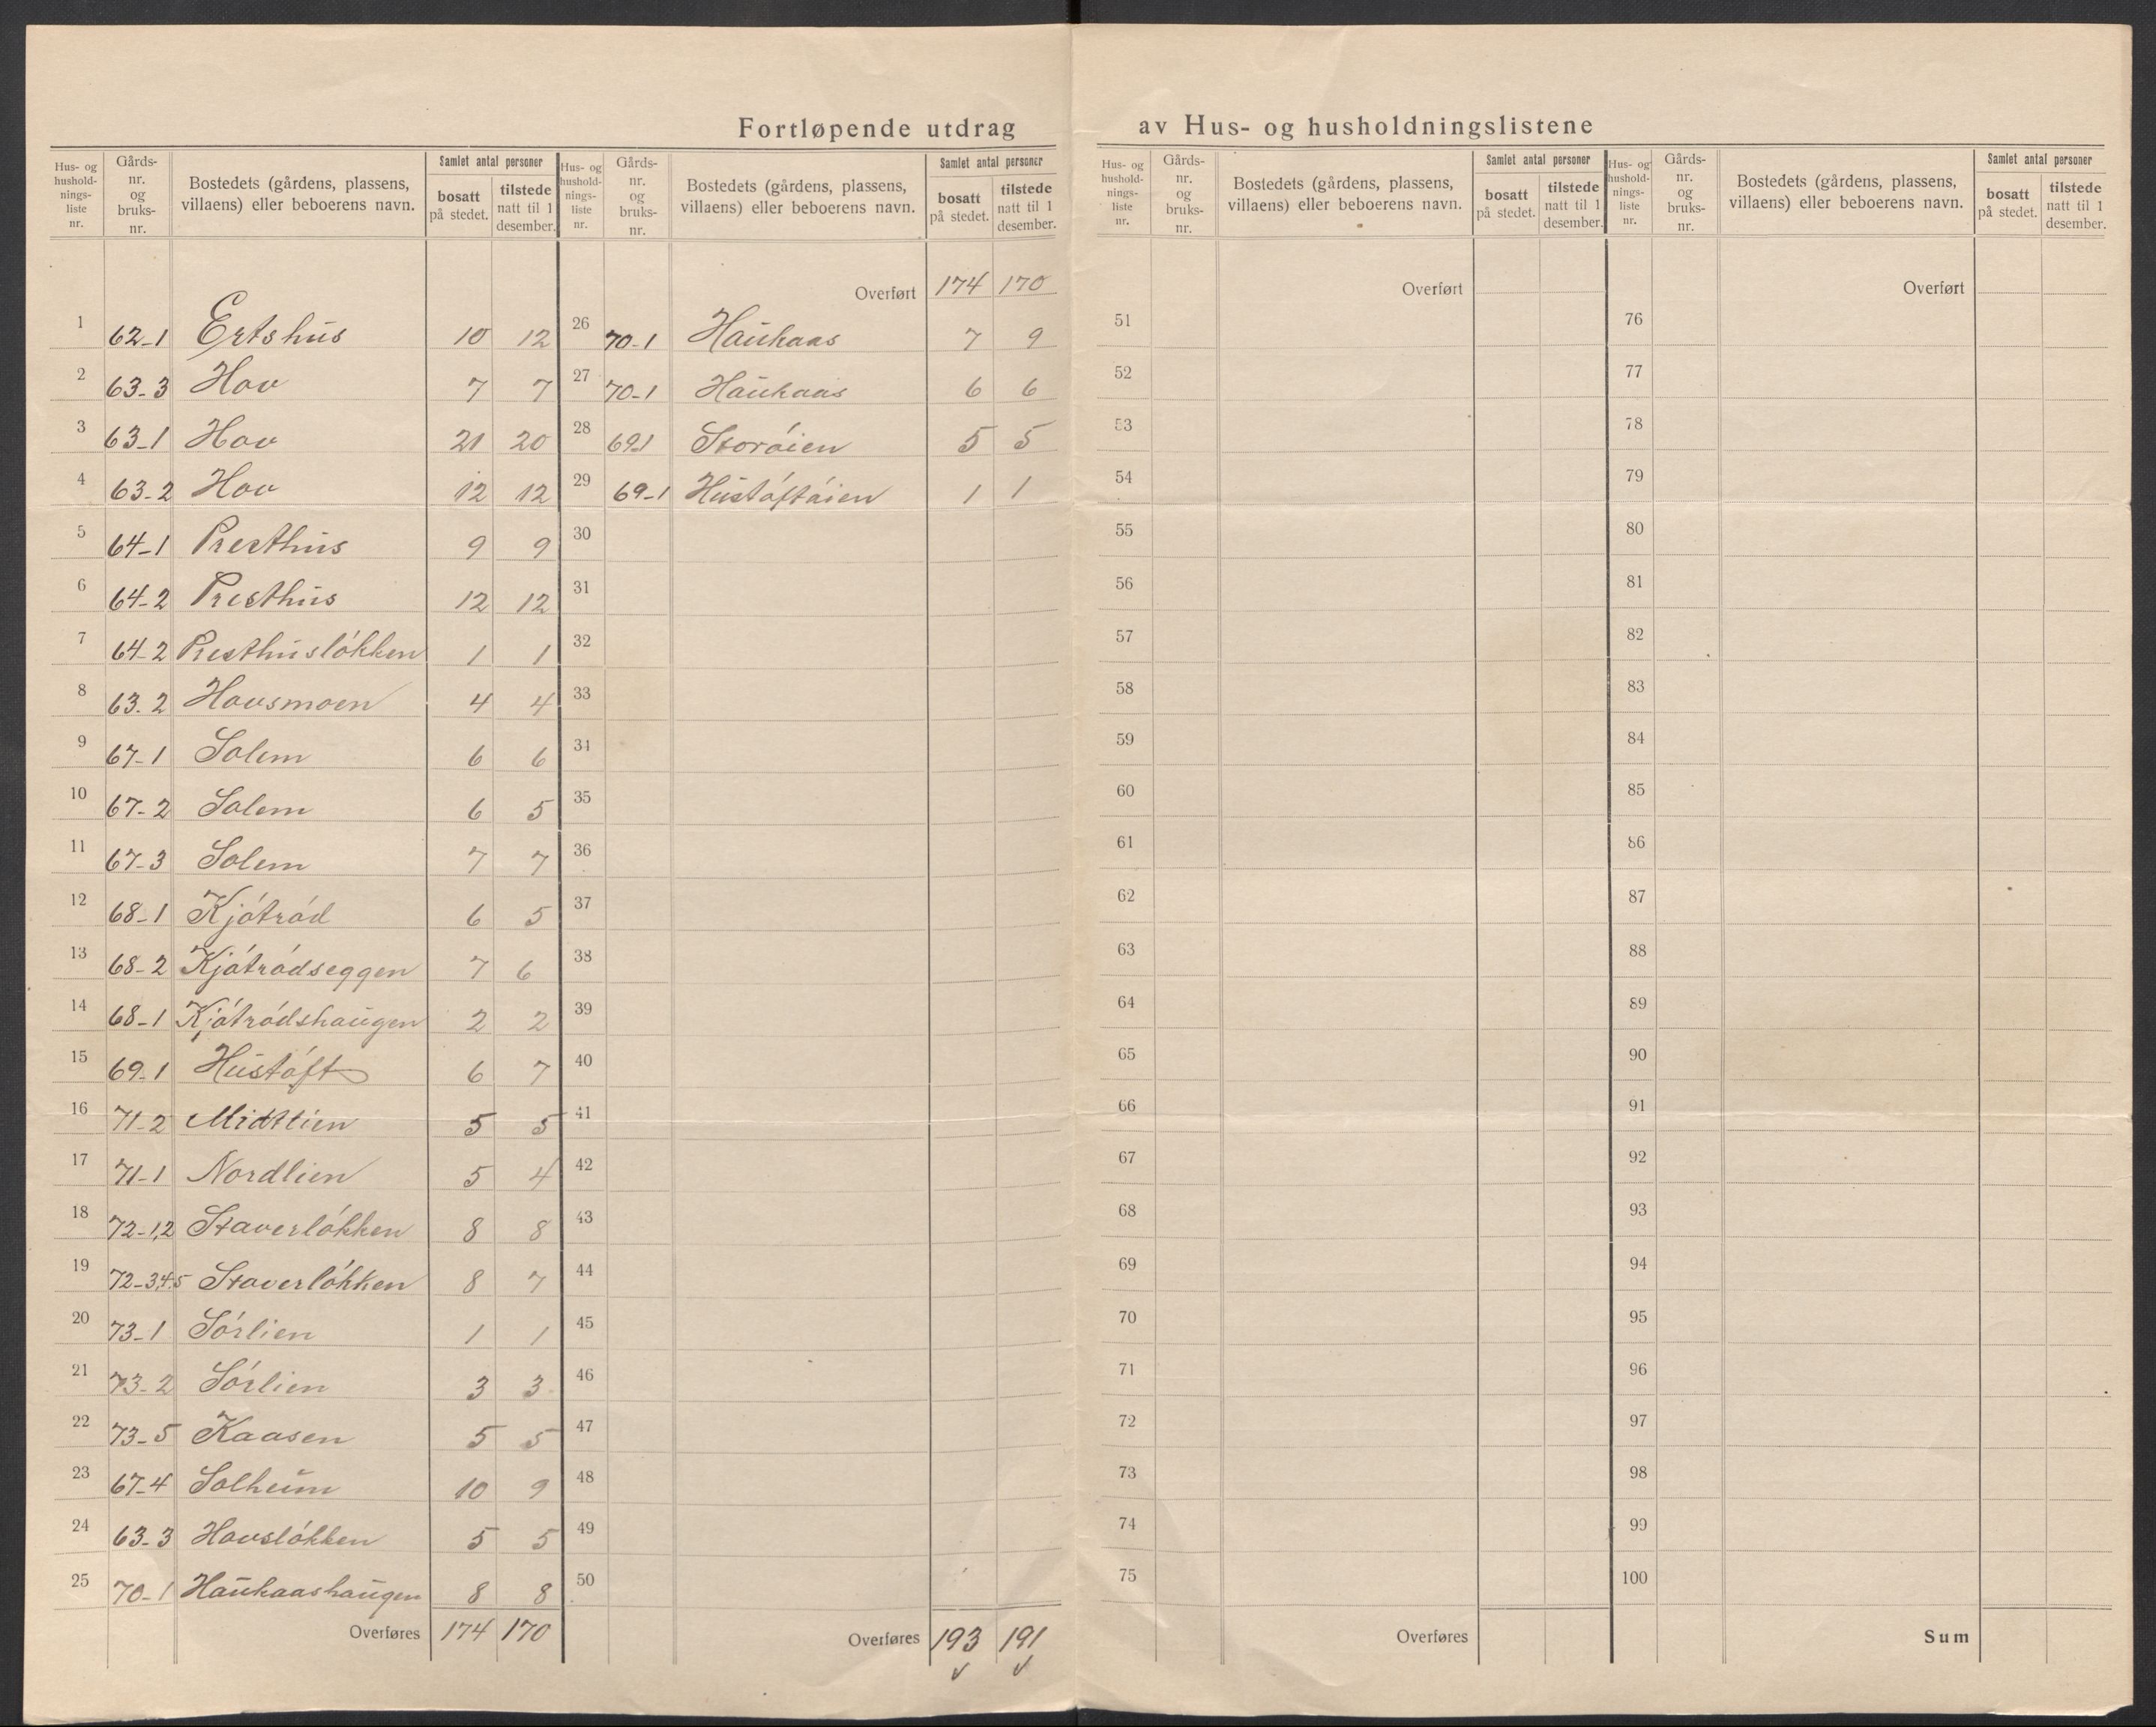 Fortløpende utdrag av Hus- og husholdningslistene
Hus- og hushold- nings- liste nr. | Gårds- nr. og bruks- nr. | Bostedets (gårdens, plassens, villaens) eller beboerens navn. | Samlet antal personer | bosatt på stedet. | tilstede natt til 1 desember.
1 62-1 Ertshus 10 12
2 63-3 Hov 7 7
3 63-1 Hov 21 20
4 63-2 Hov 12 12
5 64-1 Presthus 9 9
6 64-2 Presthus 12 12
7 64-2 Presthusløkken 1 1
8 63.2 Hovsmoen 4 4
9 67-1 Solem 6 6
10 67-2 Solem 6 5
11 67-3 Solem 7 7
12 68-1 Kjótród 6 5
13 68-2 Kjótródseggen 7 6
14 68-1 Kjótródshaugen 2 2
15 69-1 Hustóft 6 7
16 71-2 Midtlien 5 5
17 71-1 Nordlien 5 4
18 72-1,2 Staverlókken 8 8
19 72-3,4.5 Staverlókken 8 7
20 73-1 Sórlien 1 1
21 73-2 Sórlien 3 3
22 73-5 Kaasen 5 5
23 67-4 Solheim 10 9
24 63-3 Hovslókken 5 5
25 70-1 Haukaashaugen 8 8
Overføres 174 170
Hus- og hushold- nings- liste nr. | Gårds- nr. og bruks- nr. | Bostedets (gårdens, plassens, villaens) eller beboerens navn. | Samlet antal personer | bosatt på stedet. | tilstede natt til 1 desember.
Overført 174 170
26 70-1 Haukaas 7 9
27 70-1 Haukaas 6 6
28 69-1 Storóien 5 5
29 69-1 Hustóftóien 1 1
30
31
32
33
34
35
36
37
38
39
40
41
42
43
44
45
46
47
48
49
50
Overføres 193 191
Hus- og hushold- nings- liste nr. | Gårds- nr. og bruks- nr. | Bostedets (gårdens, plassens, villaens) eller beboerens navn. | Samlet antal personer | bosatt på stedet. | tilstede natt til 1 desember.
Overført
51
52
53
54
55
56
57
58
59
60
61
62
63
64
65
66
67
68
69
70
71
72
73
74
75
Overføres
Hus- og hushold- nings- liste nr. | Gårds- nr. og bruks- nr. | Bostedets (gårdens, plassens, villaens) eller beboerens navn. | Samlet antal personer | bosatt på stedet. | tilstede natt til 1 desember.
Overført
76
77
78
79
80
81
82
83
84
85
86
87
88
89
90
91
92
93
94
95
96
97
98
99
100
Sum